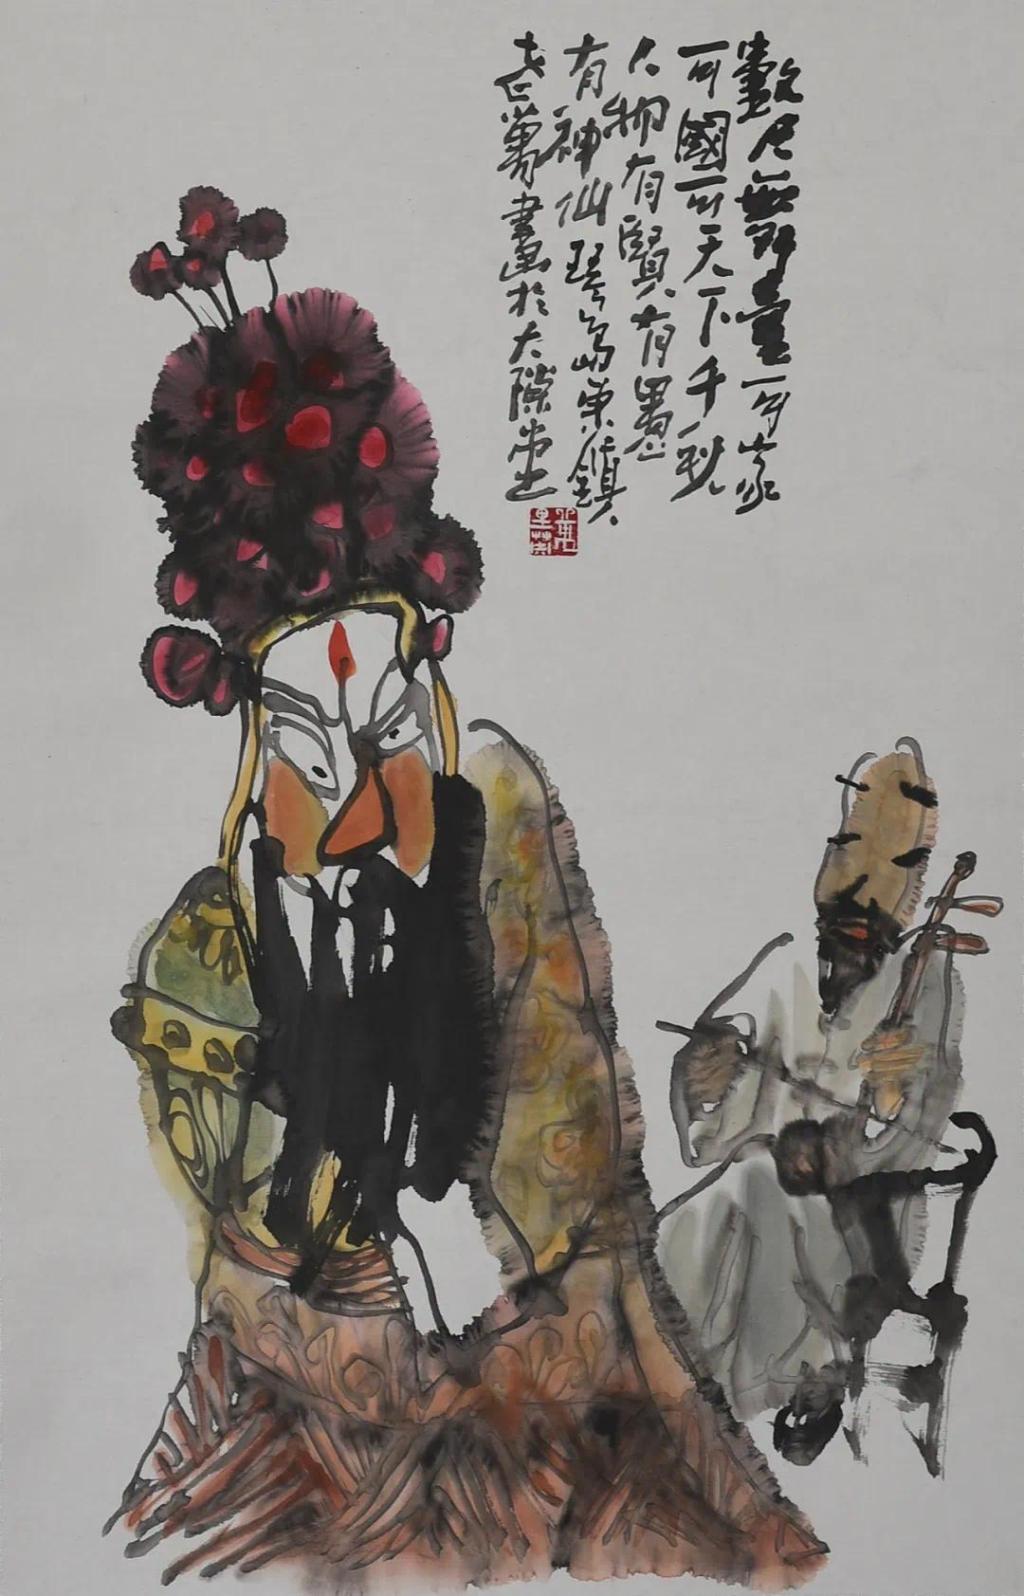 數尺無邦臺可家
可國可天下千秋
人物有賢有愚
有神仙琴島東鎮
老萬書畫於大隙堂